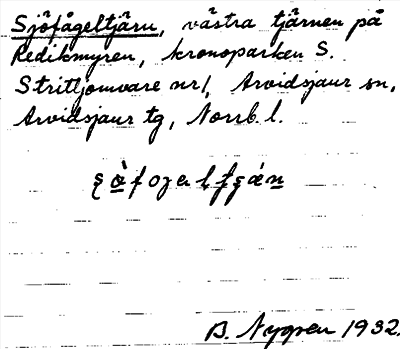 Sjöfågeltjärn, västra tjärnen på
Redikmyren, kronoparken S.
Strittjomvare nr 1, Arvidsjaur sn,
Arvidsjaur tg, Norrb. l.
B. Nygren 1932.